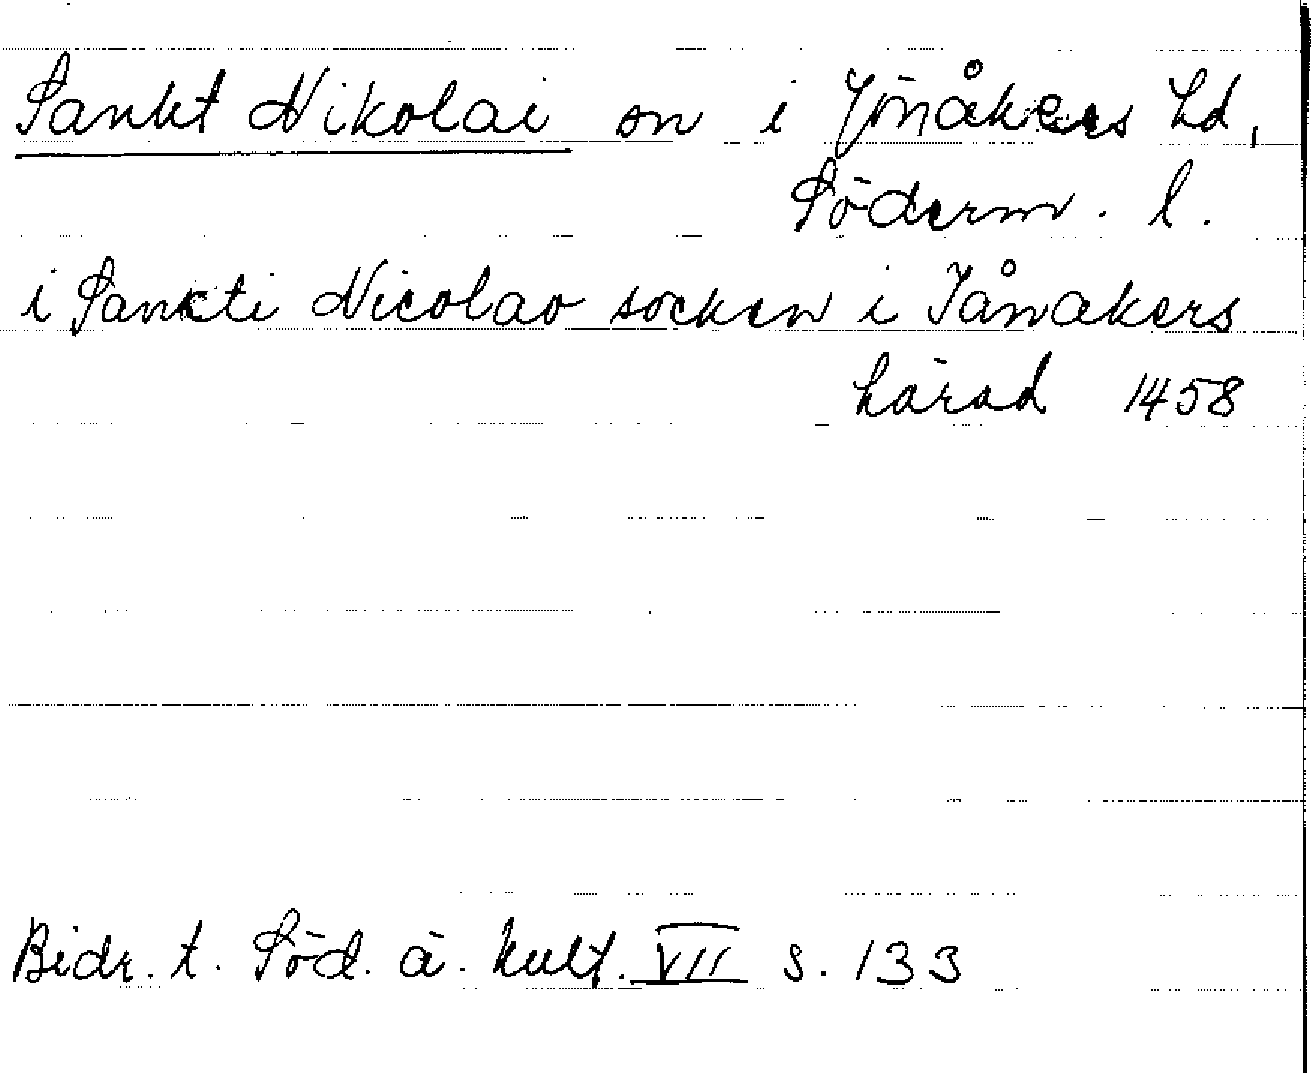 Sankt Nikolai sn i Jönåkers hd,
Söderm. l.
i Sankti Nicolao socken i Jånakers
härad 1458
Bidr. t. Söd. ä. kult. VII s. 133